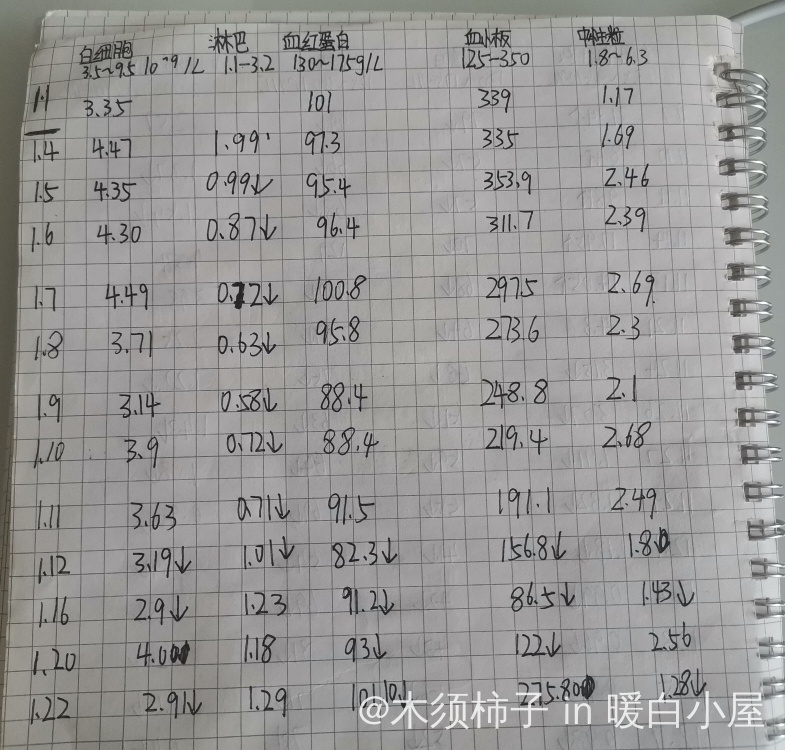 白细胞 淋巴 血红蛋白 血小板 中性粒
3.5~9.5 10^9/L 1.1-3.2 130~175g/L 125-350 1.8~6.3
1.1 3.35 101 339 1.17
1.4 4.47 1.99 97.3 335 1.69
1.5 4.35 0.99↓ 95.4 353.9 2.46
1.6 4.30 0.87↓ 96.4 311.7 2.39
1.7 4.49 0.72↓ 100.8 297.5 2.69
1.8 3.71 0.63↓ 95.8 273.6 2.3
1.9 3.14 0.58↓ 88.4 248.8 2.1
1.10 3.9 0.72↓ 88.4 219.4 2.68
1.11 3.63 0.71↓ 91.5 191.1 2.49
1.12 3.19↓ 1.01↓ 82.3↓ 156.8↓ 1.8
1.16 2.9↓ 1.23 91.2↓ 86.5↓ 1.43↓
1.20 4.0 1.18 93↓ 122↓ 2.56
1.22 2.91↓ 1.29 275.8 1.28↓
@木须柿子 in 暖白小屋